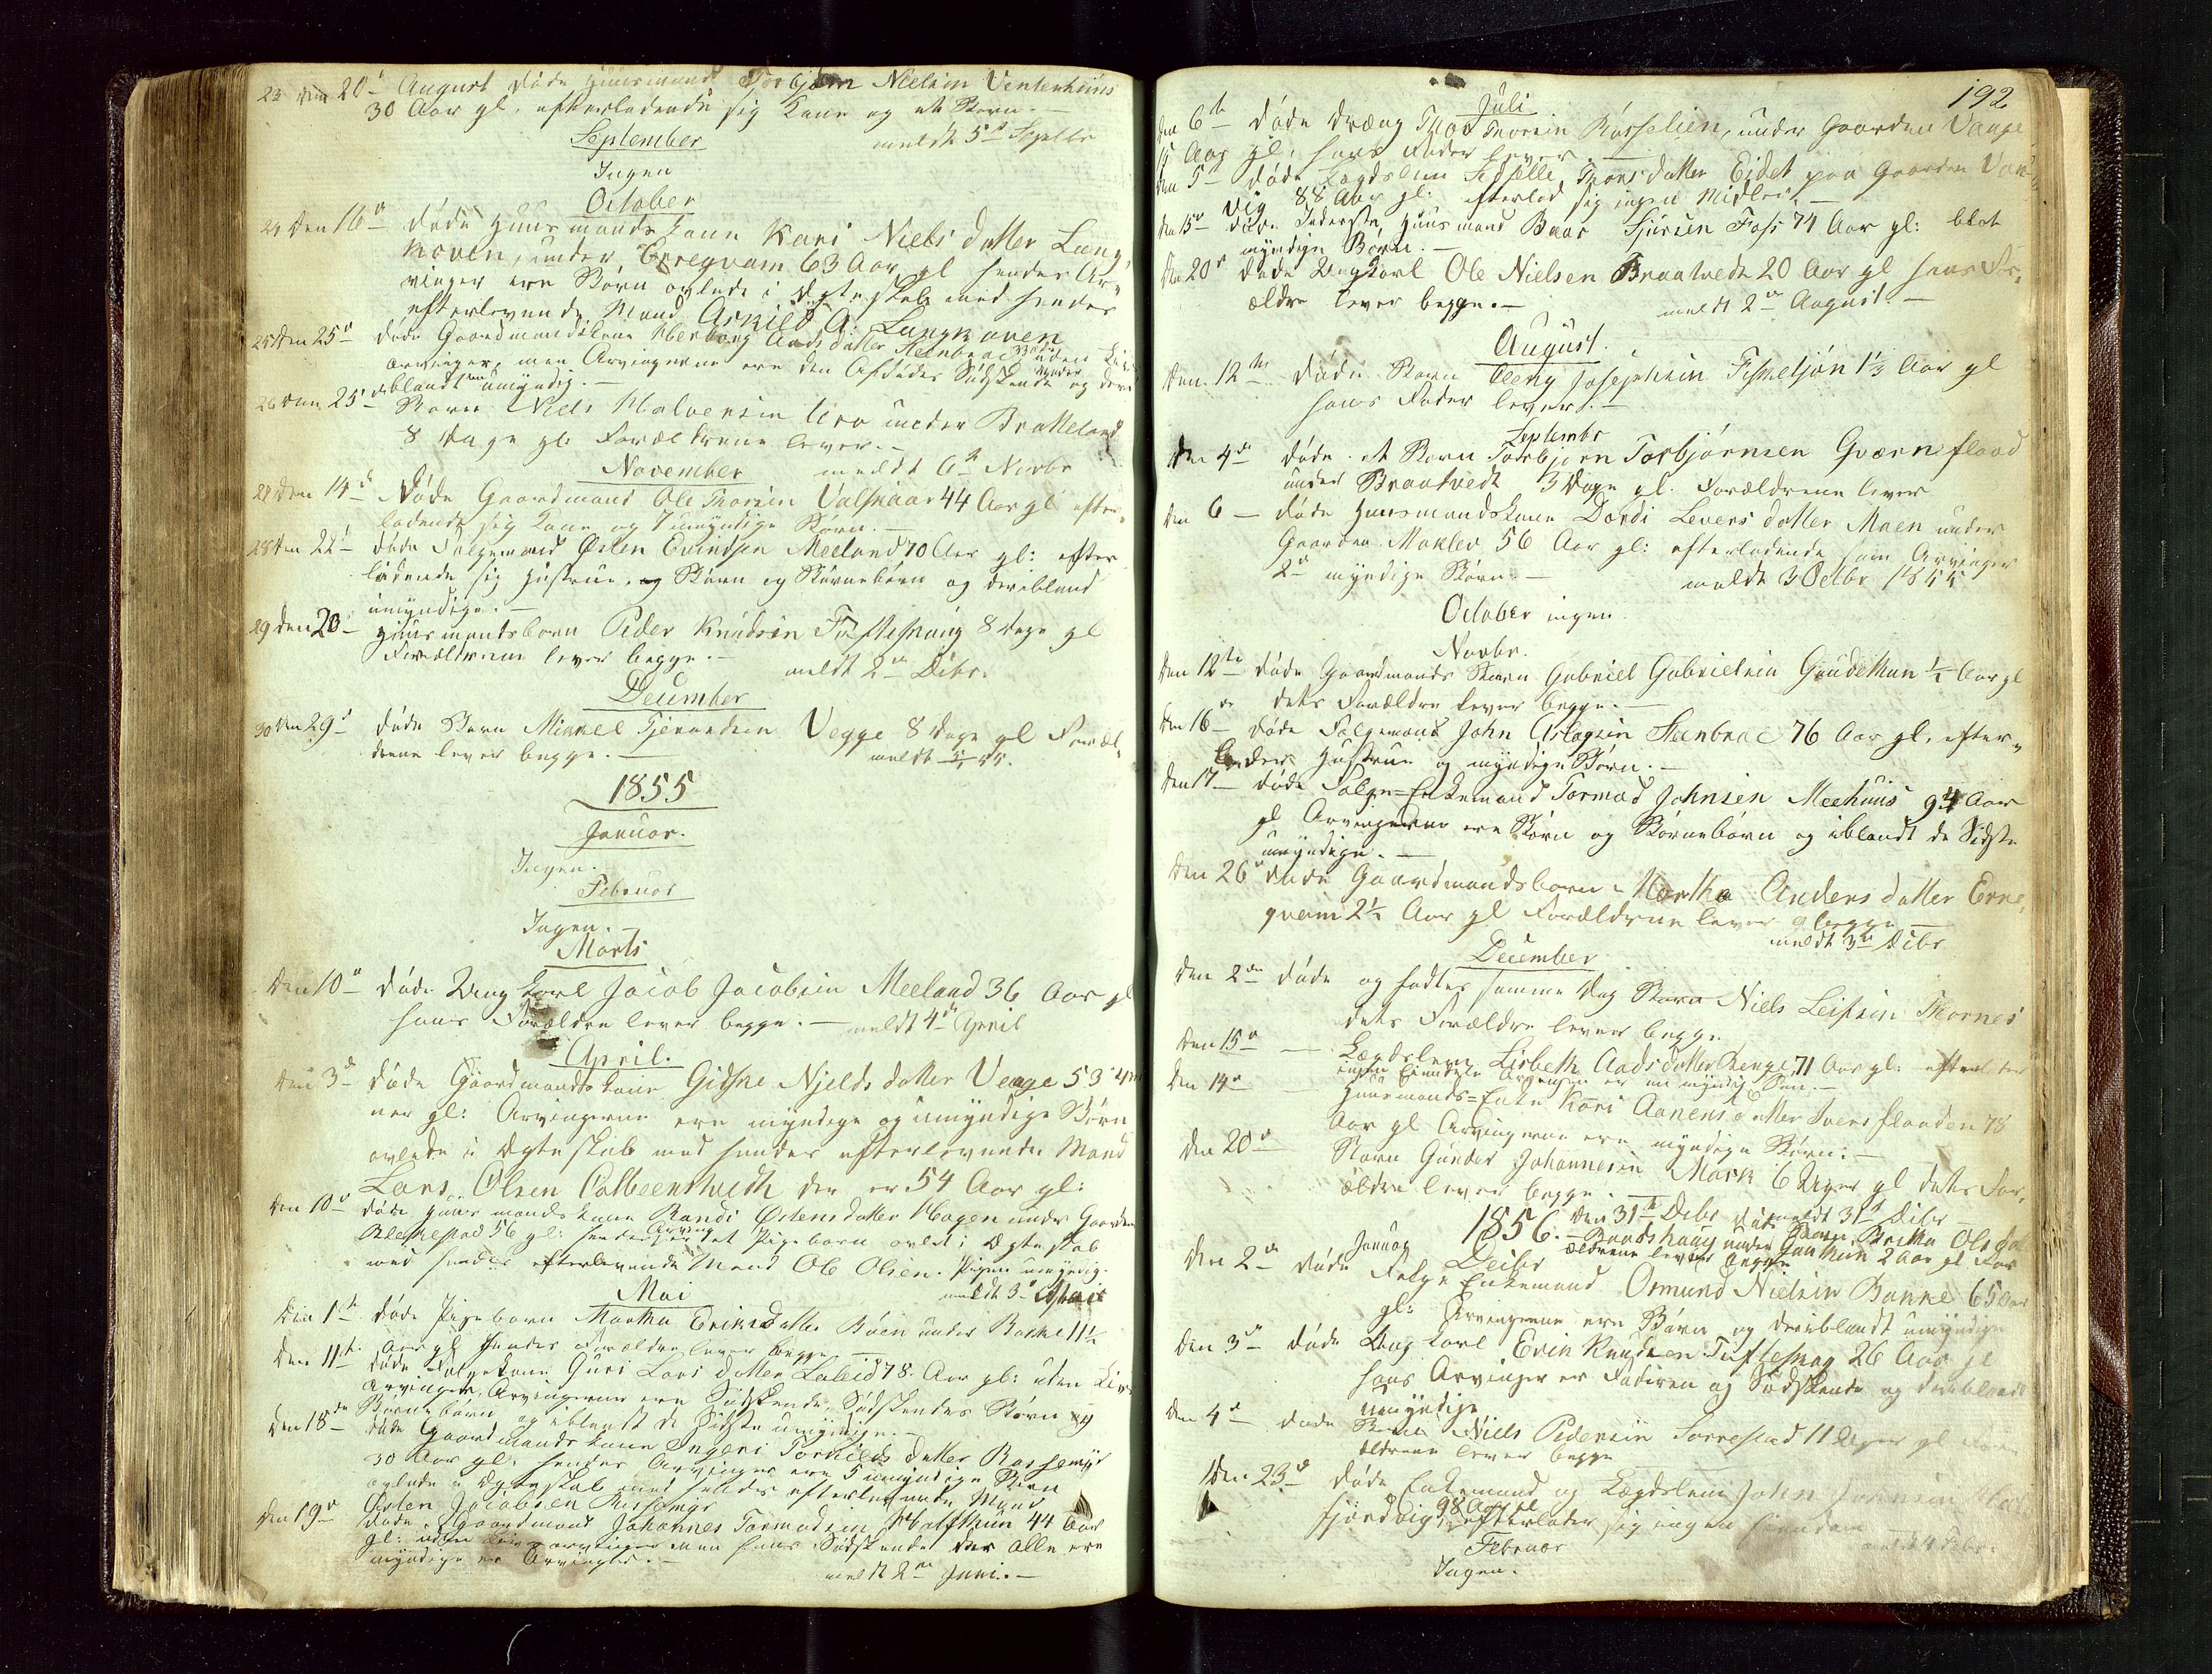 23 den 20de August døde Huusmand Torbjørn Nielsen Vintenhuus
30 Aar gl. efterladende sig Kone og et Barn.
September
meldt 5te Septbr
Ingen
October
24 Den 16de døde Huusmands Kone Kari Niels datter Lang,
hoven, under Ærreqvam 63 Aar gl hendes Ar,
vinger ere Børn avlede i Ægteskab med hendes
efterlevende Mand Askild A: Langhoven
25 den 25de døde Gaardmandskone Herborg Aadsdatter Steenbræe uden Livs
arvinger, men Arvingerne ere den Afdødes Sødskende og deri
iblandt umyndig.
26 den 25de Barn Niels Halvorsen Uro under Bratteland
8 Dage gl. Forældrene lever.
November
meldt 6te Novbr
27 den 14de Døde Gaardmand Ole Thorsen Valsnaar 44 Aar gl efter,
ladende sig Kone og 7 umyndige Børn.
28 den 22de døde Følgemand Østen Evindsen Meeland 70 Aar gl: efter
ladende sig Hustrue, og Børn og Børnebørn og deribland
umyndige.
29 den 20 Huusmandsbarn Peder Knudsen Tufteskaug 8 Dage gl
Forældrene lever begge.
meldt 2den Decbr.
December
30 den 29de døde Barn Mikkel Tjerandsen Vegge 8 Dage gl Foræl,
drene lever begge.
1855
Januar.
Ingen.
Februar
Ingen.
Marts
Den 10de døde Ungkarl Jacob Jacobsen Meeland 36 Aar gl
hans Forældre lever begge. meldt 4de April
April.
den 3de døde Gaardmands Kone Gidske Njelds datter Veage 53
ner gl: Arvingerne ere myndige og umyndige Børn
avlede i Ægteskab med hendes efterlevende Mand
Lars Olsen Calbeenthvedt der er 54 Aar gl:
den 10de døde Huusmandskone Randi Østens datter Hagen under Gaarden
Bleskestad 56 gl: hendes Arving er et Pigebarn avlet i Ægteskab
med hendes efterlevende Mand Ole Olsen. Pigen umyndig.
Mai
meldt 3de Mai
Den 1te døde Pigebarn Martha Eriksdatter Røen under Bakke 11½
Aar gl hendes Forældre lever begge
Den 11te døde Følgekone Guri Lars datter Laleid 78 Aar gl: uden Livs
arvinger, Arvingerne ere Sødskende, Sødskendes Børn og
Børnebørn og iblandt de Sidste umyndige.
Den 18de døde Gaardmands kone Ingeri Torkilds datter Rossemyr
30 Aar gl: hendes Arvinger ere 5 umyndige Børn
avlede i Ægteskab med hendes efterlevende Mand
Østen Jacobsen Rossemyr
Den 19de døde Gaardmand Johannes Tormodsen 44 Aar
gl: uden Livsarvinger men hans Sødskende der Alle ere
myndige er Arvinger.
meldt 2den Juni.
192
Juli
den 6te døde Dræng Thor Thorsen Røsselien, under Gaarden Vaage,
Aar gl. hans Fader lever.
den 5te døde Lægdslem Sidselle Thorsdatter Eidet paa Gaarden
vig 88 Aar gl: efterlod sig ingen Midler.
den 15de døde Inderste, Huusmand Baar Sjursen Foss 71 Aar gl: blot
myndige Børn.
den 20de døde Ungkarl Ole Nielsen Braatvedt 20 Aar gl hans For,
ældre lever begge.
meldt 2den August
August.
Den 12te døde Barn Josephsen Fisketjøn 1⅓ Aar gl
hans Fader lever.
Septembr
Den 4de døde et Barn Torbjørn Torbjørnsen Qværnflaad
under Braatvedt 3 Dage gl. Forældrene lever
den 6 døde Huusmandskone Dordi Levers datter Moen under
Gaarden Mokleiv 56 Aar gl: efterladende som Arvinger
2de myndige Børn.
meldt 3 Octbr 1855
October ingen
Novbr.
Den 12te døde Gaardmands Barn Gabriel Gabrielsen Gaudethun ½ Aar gl
dets Forældre lever begge.
den 16de døde Følgemand John Aslagsen Steenbræe 76 Aar gl, efter,
lader Hustrue og myndige Børn.
Den 17 døde Følge-Enkemand Tormod Johnsen Meehuus 94 Aar
gl Arvingerne ere Børn og Børnebørn og iblandt de Sidste
umyndige.
den 26de døde Gaardmandsbarn Martha Anders datter Erre,
qvam 2½ Aar gl Forældrene lever begge
meldt 3de Decbr
December
den 2den døde og fødtes samme Dag Barn Niels Leifsen Thornes
dets Forældre lever begge
Den 15de Lægdslem Lisbeth Aadsdatter 71 Aar gl: efterlader
ingen Eiendele Arvingen er en myndig Søn.
den 14de Huusmands-Enke Kari Aanensdatter Svensflaaden 78
Aar gl Arvingerne ere myndige Børn.
den 20de Barn Gunder Johannesen Mork 6 Uger gl dets For,
ældre lever begge. meldt 31te Decbr
1856. Den 31te Decbr døde Barn Britha Olsda
Roaldshaug under Jonthun 2 Aar gl For
ældrene lever begge
Januar
Den 2den døde Følge Enkemand Osmund Nielsen Bakke 65 Aar
gl: Arvingerne ere Børn og deriblandt umyndige
den 3de døde Ungkarl Evin Knudsen Tufteskog 26 Aar gl
hans Arvinger er Faderen og Sødskende og deriblandt
umyndige
den 4de døde Barn Niels Pedersen Sørrestad 11 Uger gl For
ældrene lever begge
Den 23de døde Enkemand og Lægdslem John
fjordvig, 98 Aar gl efterlader sig ingen Eiendom
Februar
Ingen.